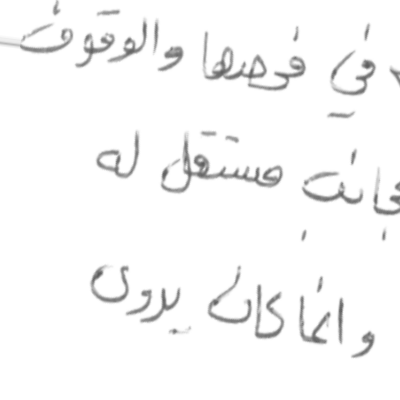 في فحصها والوقوف
مستقل له
وانما كان يروى